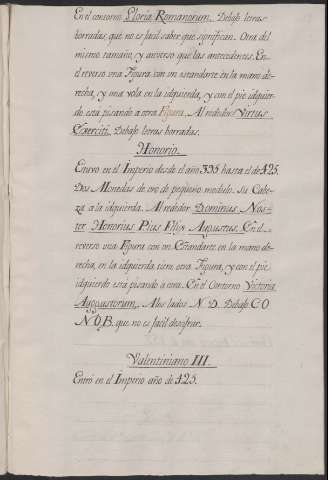 En el contorno Gloria Romanorum. Debajo letras
borradas, que no es facil saber que significan. Otra del
mismo tamaño, y anverso que las antecedentes. En
el reverso una Figura con un estandarte en la mano de-
recha, y una vola en la izquierda, y con el pie izquier-
do está pisando a otra Figura. Al rededor Virtus
Exerciti. Debajo letras borradas.
Honorio.
Entro en el Imperio desde el año 395 hasta el de 425.
Dos Monedas de oro de pequeño modulo. Su Cabe-
za a la izquierda. Al rededor Dominus Nos-
ter Honorius Pius Felix Augustus. En el re-
verso una Figura con un Estandarte en la mano de-
recha, en la izquierda tiene otra Figura, y con el pie
izquierdo está pisando a otra. En el Contorno Victoria
Auggustorum. A los lados N. D. Debajo C O
N O B. que no es facil descifrar.
Valentiniano III.
Entró en el Imperio año de 425.